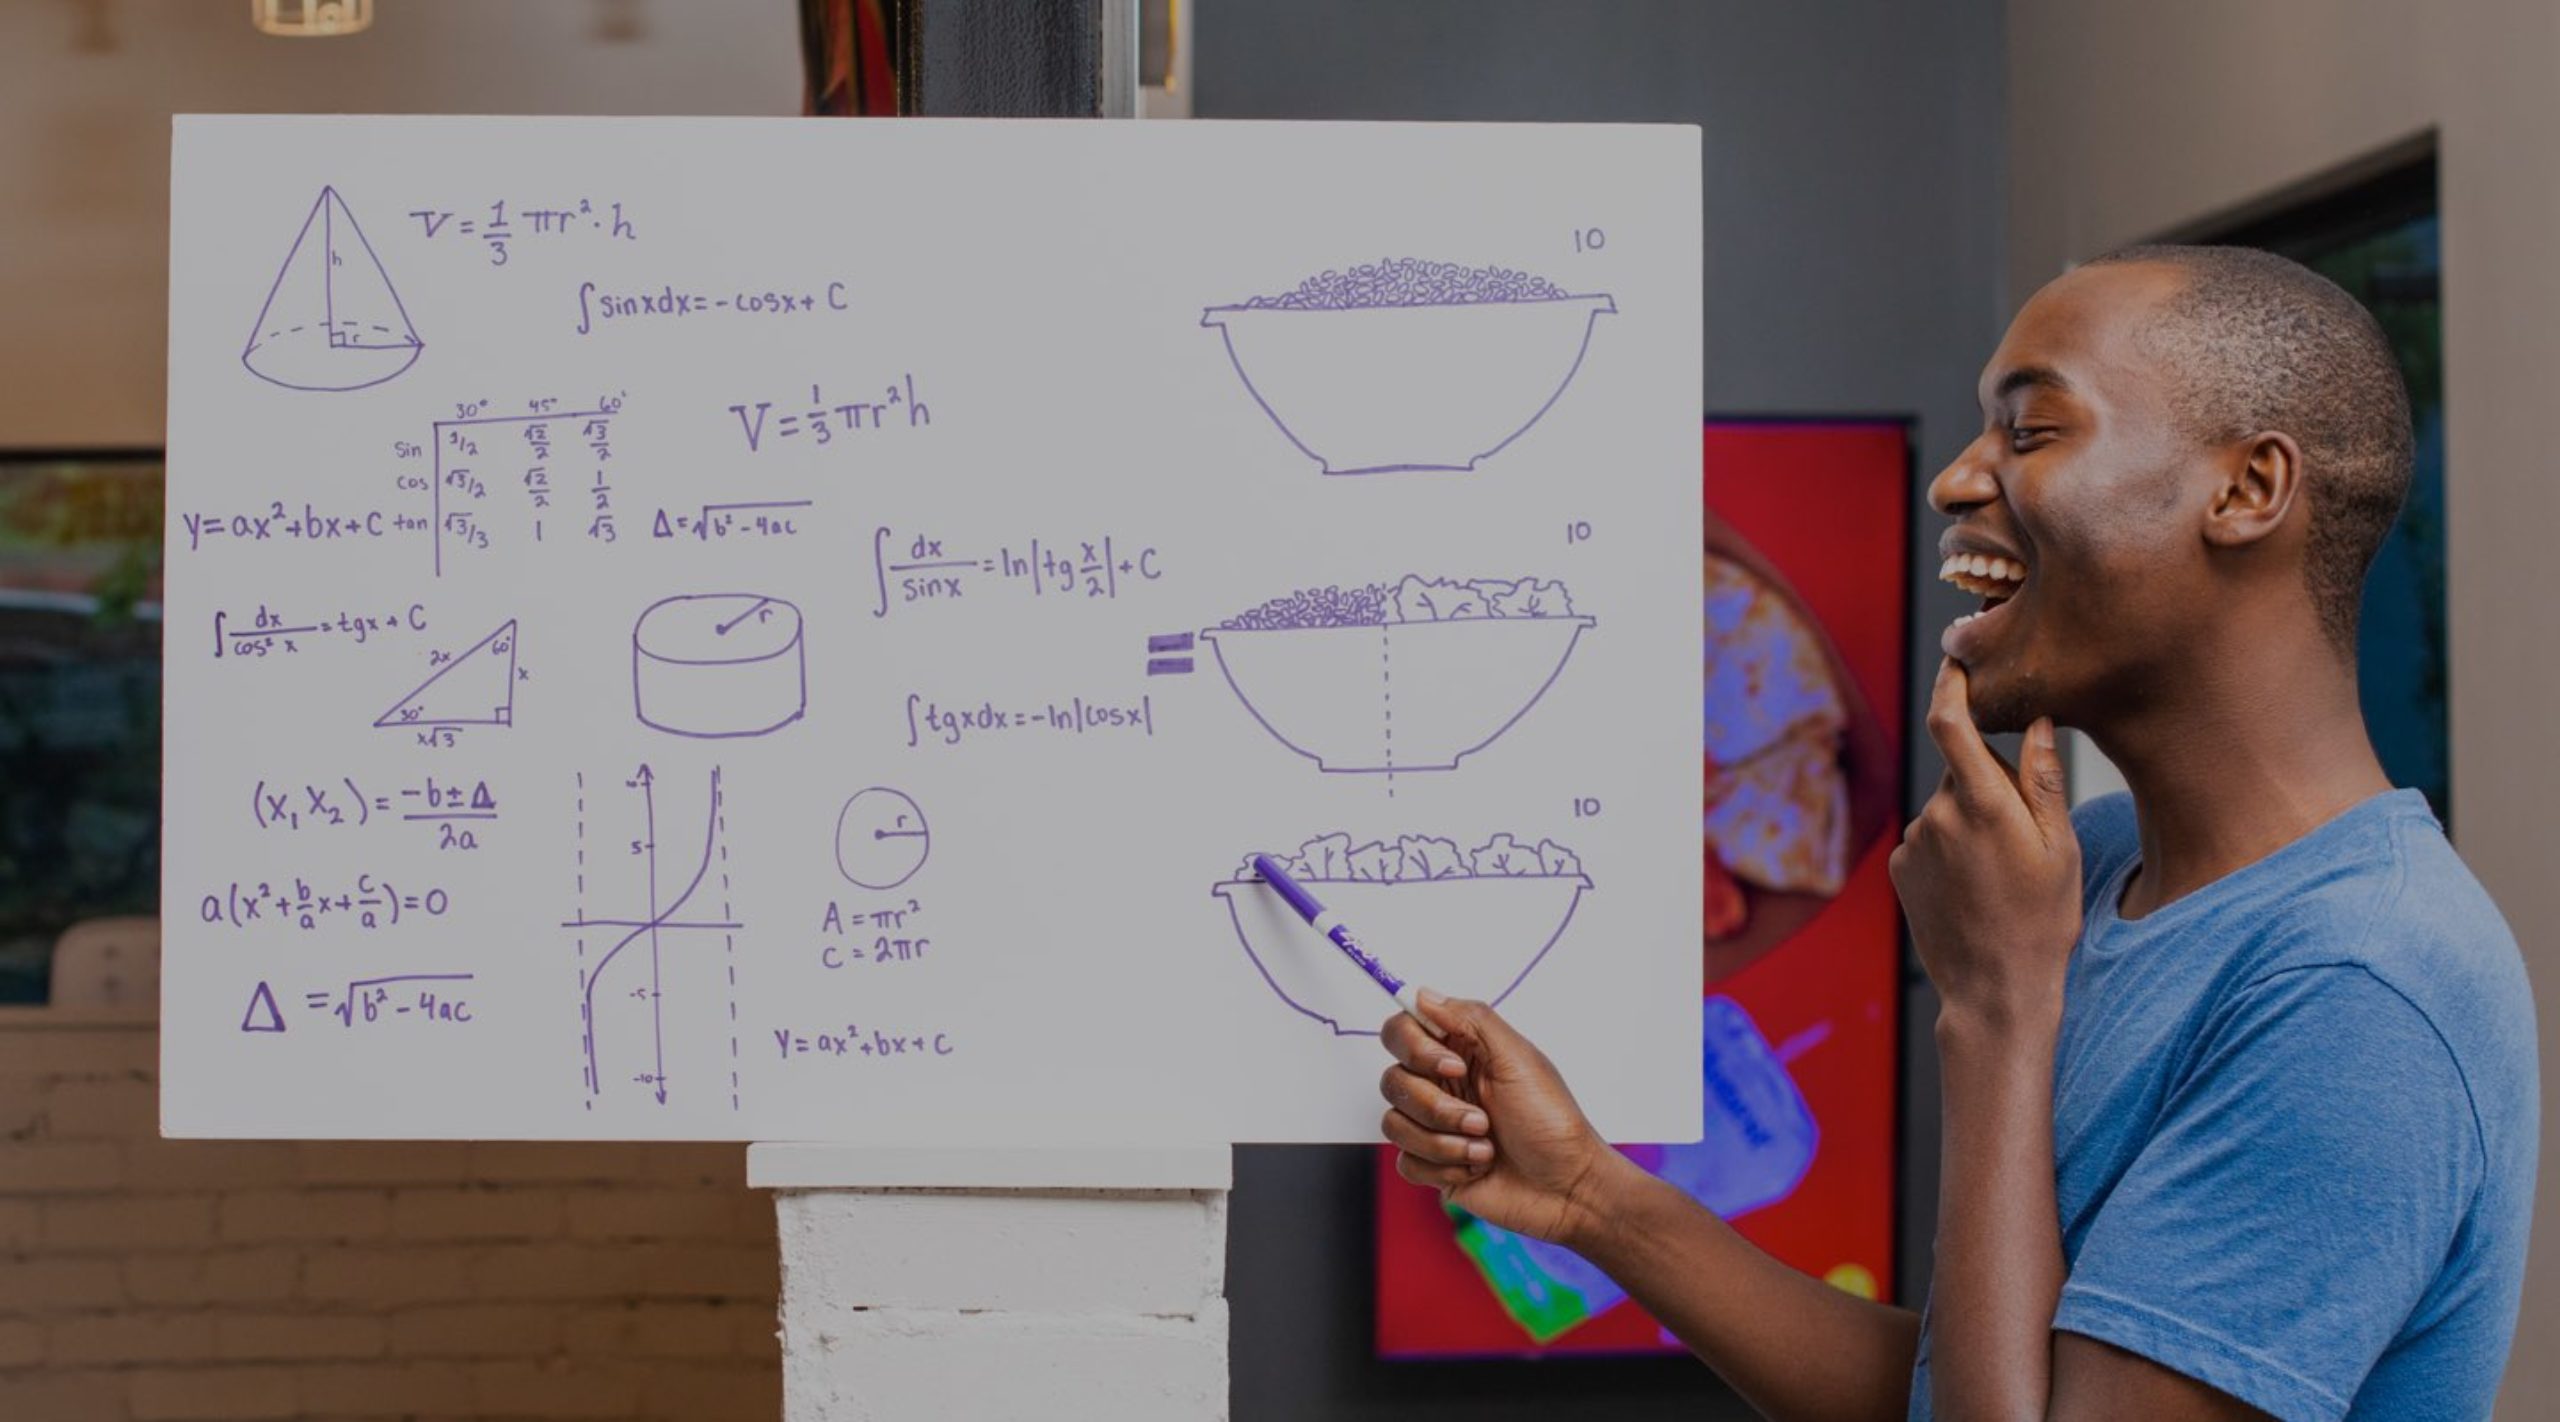 V = 1/3 πr² · h
h
r
∫ sinxdx = - cosx + C
10
30° 45° 60°
sin 1/2 √2/2 √3/2
cos √3/2 √2/2 1/2
tan √3/3 1 √3
V = 1/3 πr²h
y = ax² + bx + C
Δ = √b² - 4ac
∫ dx/sinx = ln|tg x/2| + C
10
=
∫ dx/cos² x = tgx + C
2x
60°
x
30°
x√3
r
∫ tgxdx = -ln|cosx|
(x₁ x₂) = -b ± Δ / 2a
5
-5
-10
r
10
a(x² + b/a x + c/a) = 0
A = πr²
C = 2πr
Δ = √b² - 4ac
y = ax² + bx + C